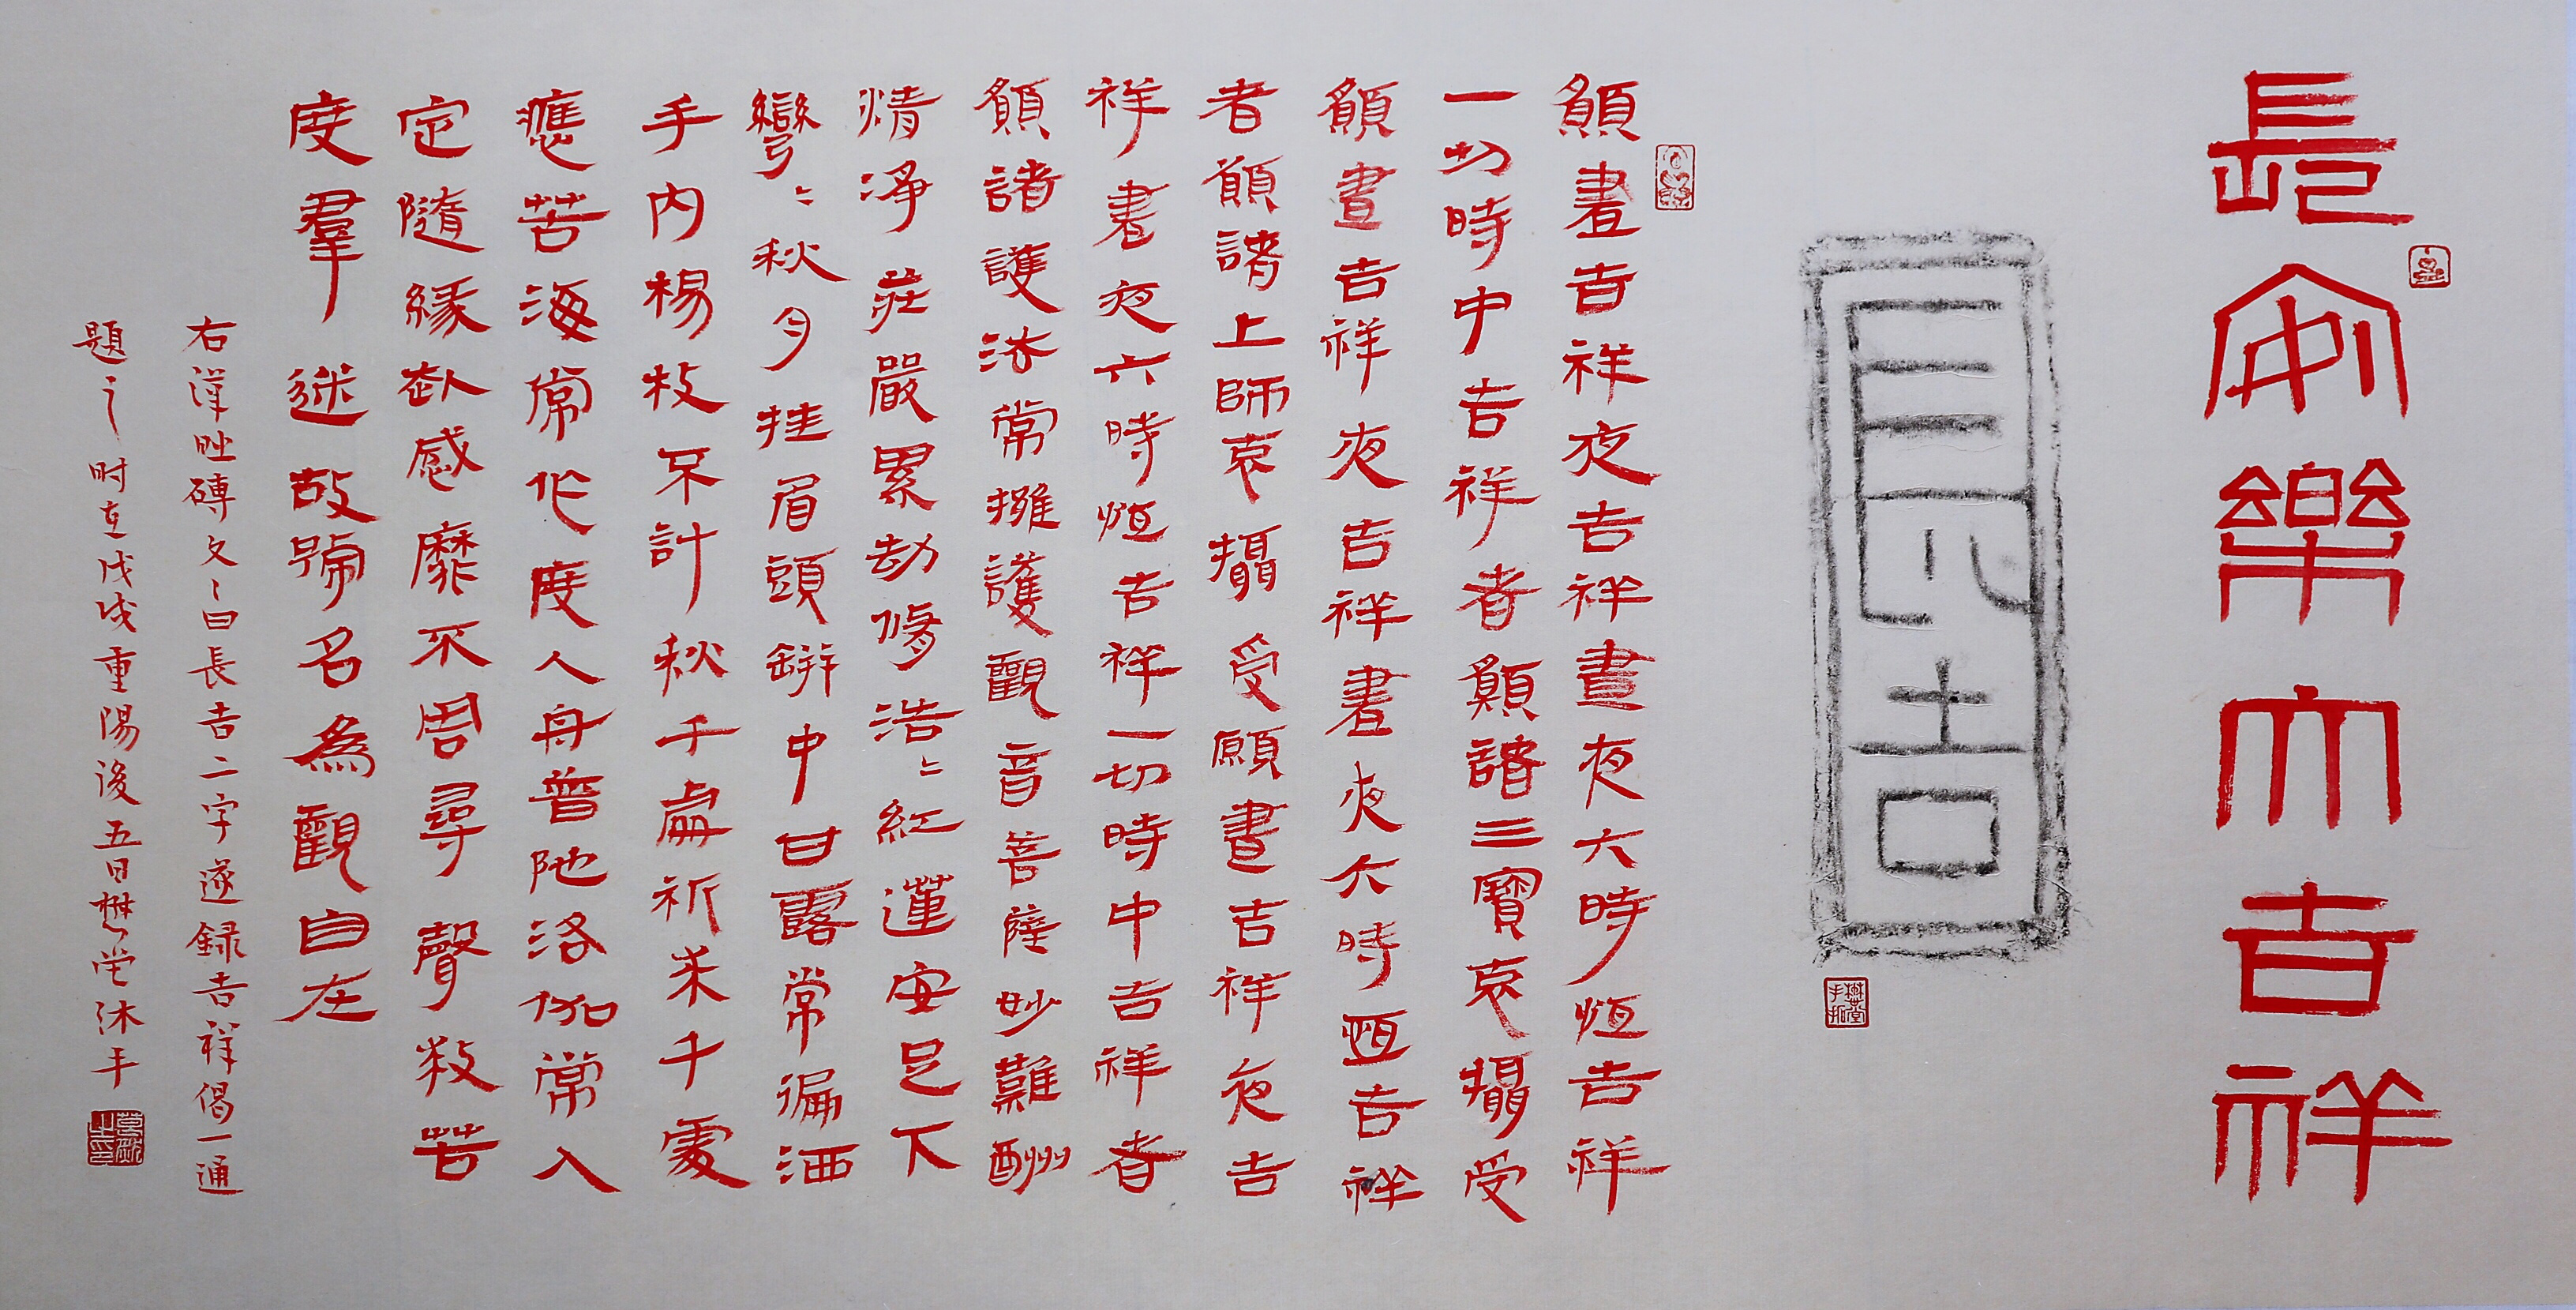 長安樂大吉祥
長吉
願晝吉祥夜吉祥晝夜六時恆吉祥
一切時中吉祥者願諸三寶哀攝受
願晝吉祥夜吉祥晝夜六時恆吉祥
者願諸上師哀攝受願晝吉祥夜吉
祥晝夜六時恆吉祥一切時中吉祥者
願諸護法常擁護觀音菩薩妙難酬
精淨莊嚴累劫修浩〻紅蓮安足下
彎〻秋月挂眉頭缾中甘露常徧洒
手内楊枝不計秋千處祈求千處
應苦海常作度人舟普陀洛伽常入
定隨緣赴感靡不周尋聲救苦
度羣迷故號名為觀自在
右漢磚文〻曰長吉二字遂録吉祥偈一通
題之時在戊戌重陽後五日堂沐手